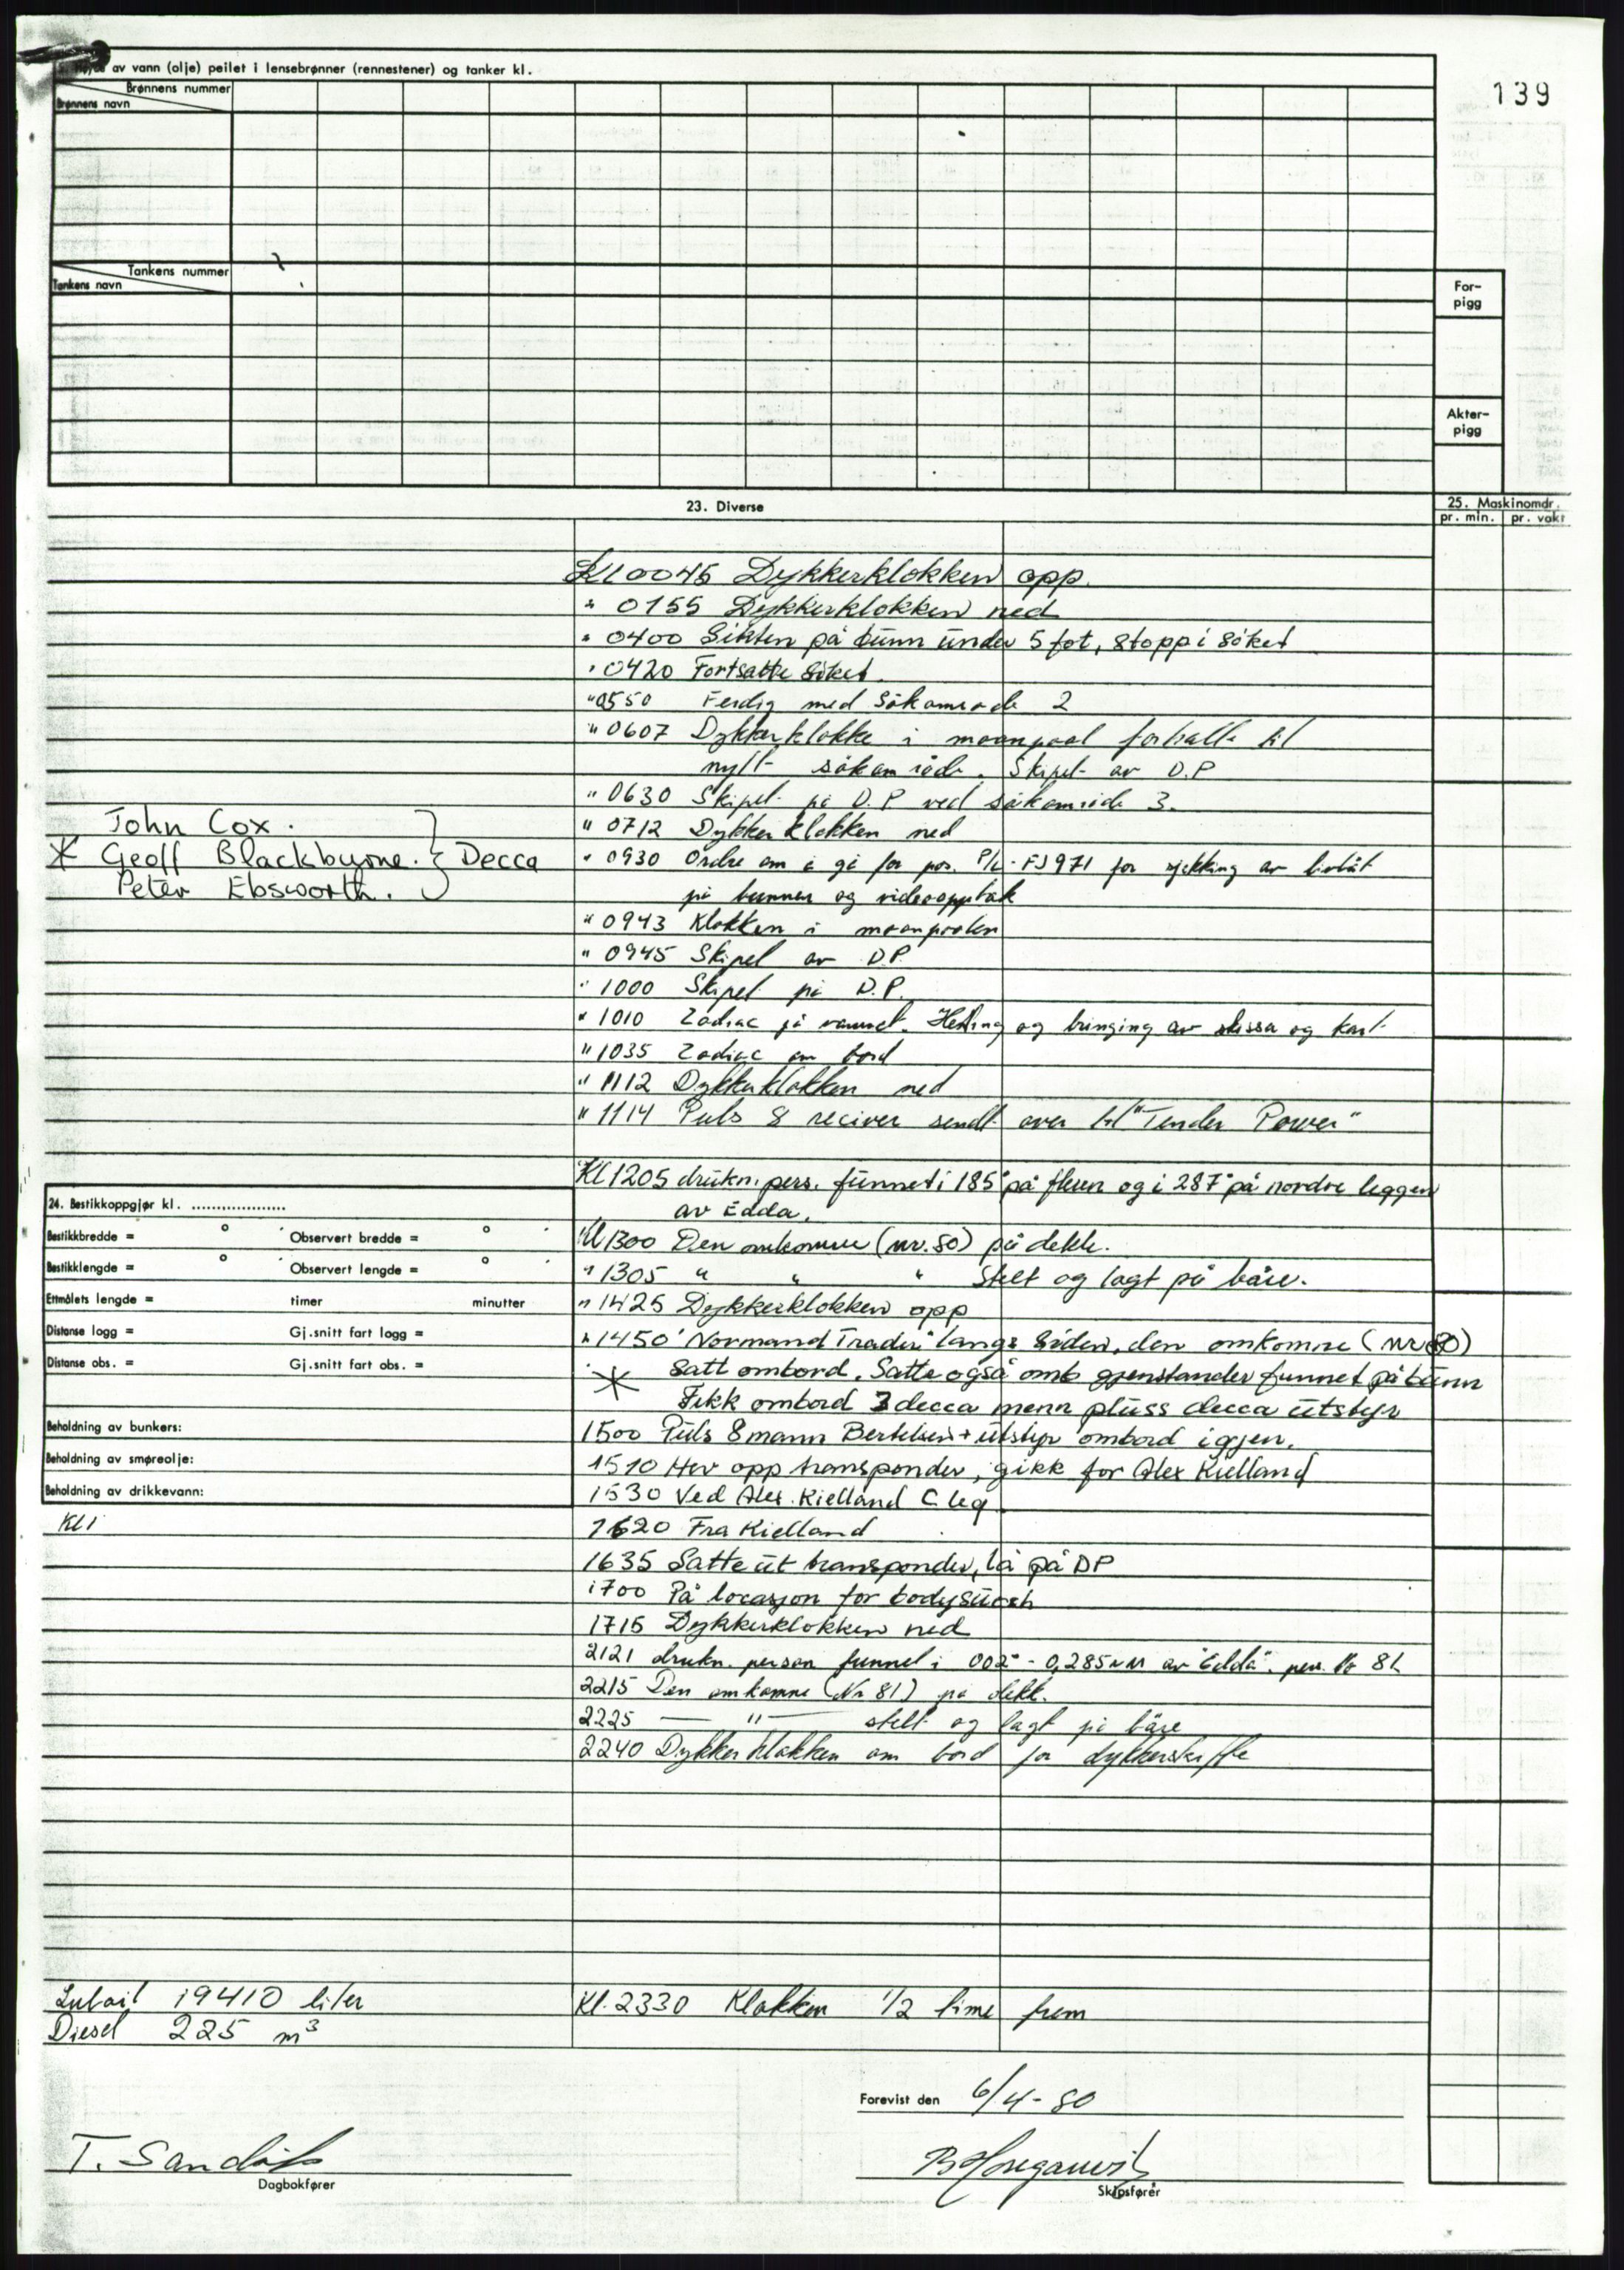 139
av vann (olje) peilet i lensebrønner (rennestener) og tanker kl.
Brønnens nummer
Brønnens navn
Tankens nummer
Tankens navn
For-
pigg
Akter-
pigg
23. Diverse
25. Maskinomdr.
pr. min. pr. vakt
Kl 0045 Dykkerklokken opp.
" 0155 Dykkerklokken ned
" 0400 Sikten på bunn under 5 fot, stopp i söket
" 0420 Fortsatte söket.
" 0550 Ferdig med Sökområde 2
" 0607 Dykkerklokke i moonpool forhalte til
nytt sökområde. Skipet av D.P
" 0630 Skipet på D.P ved sökområde 3.
John Cox.
" 0712 Dykkerklokken ned
* Geoff Blackbyrne. } Decca
Peter Ebsworth.
" 0930 Ordre om å gå for pos. P/L - FJ971 for sjekking av livbåt
på bunnen og videoopptak
" 0943 Klokken i moonpoolen
" 0945 Skipet av D.P.
" 1000 Skipet på D.P.
" 1010 Zodiac på vannet. Henting og bringing av skisse og kart
" 1035 Zodiac om bord
" 1112 Dykkerklokken ned
" 1114 Puls 8 reciver sendt over til "Tender Power"
Kl 1205 drukn. pers. funnet i 185° på fluen og i 287° på nordre leggen
av Edda.
24. Bestikkoppgjør kl. ...................
Bestikkbredde = ° ' Observert bredde = ° '
Bestikklengde = ° ' Observert lengde = ° '
Ettmålets lengde = timer minutter
Distanse logg = Gj.snitt fart logg =
Distanse obs. = Gj.snitt fart obs. =
Beholdning av bunkers:
Beholdning av smøreolje:
Beholdning av drikkevann:
Kl 1300 Den omkomne (nr. 80) på dekk.
" 1305 " " " Stelt og lagt på båre.
" 1425 Dykkerklokken opp
" 1450 "Normand Trader" langs siden, den omkomne (nr 80)
* Satt ombord. Satte også omb gjenstander funnet på bunn
Fikk ombord 3 decca menn pluss decca utstyr
1500 Puls 8 mann Bertelsen + utstyr ombord igjen.
1510 Hev opp transponder, gikk for Alex Kielland
1530 Ved Alex. Kielland C leg
Kl 1
1620 Fra Kielland
1635 Satte ut transponder, lå på DP
1700 På locasjon for bodysurch
1715 Dykkerklokken ned
2121 drukn. person funnet i 002° - 0,285 NM av "Edda". pers. Nr 81
2215 Den omkomne (Nr 81) på dekk.
2225 — " — stelt og lagt på båre
2240 Dykkerklokken om bord for dykkerskifte
Luboil 19410 liter
Kl. 2330 Klokken 1/2 time frem
Diesel 225 m³
Forevist den 6/4-80
Dagbokfører
Skipsfører